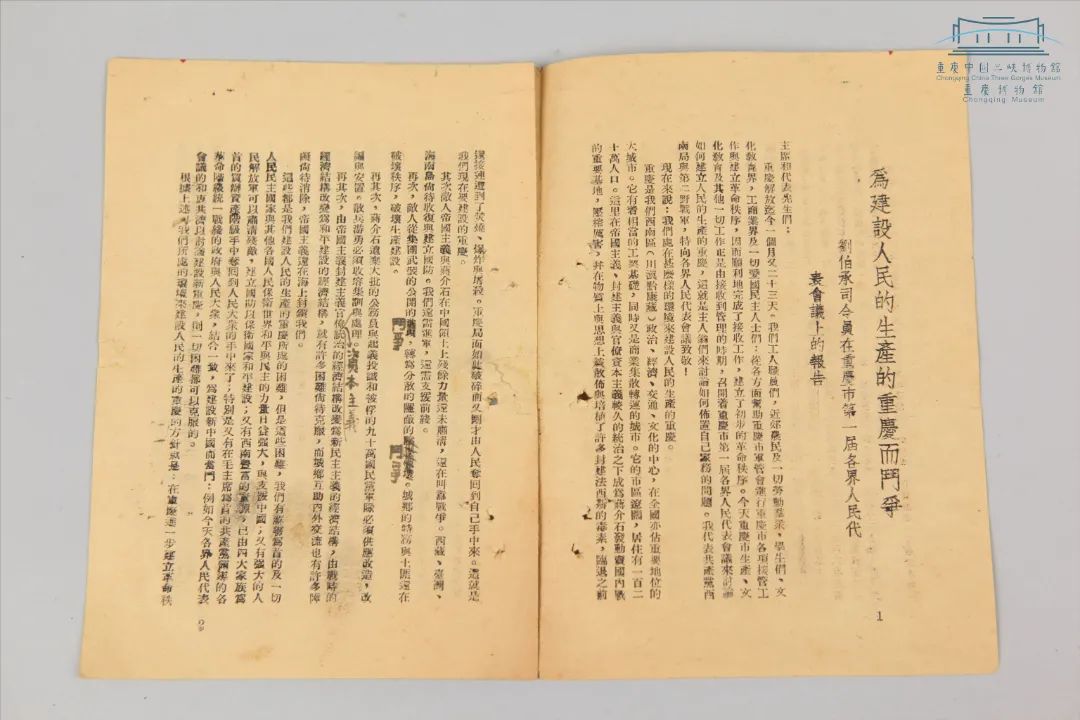 重慶中国三峡博物館
Chongqing China Three Gorges Museum
重慶博物館
Chongqing Museum
為建設人民的生產的重慶而鬥爭
劉伯承司令員在重慶市第一屆各界人民代
表會議上的報告
主席和代表先生們：
重慶解放迄今一個月又二十三天。我們工人職員們，近郊農民及一切勞動羣眾，學生們、文
化教育界，工商業界及一切愛國民主人士們；從各方面幫助重慶市軍管會進行重慶市各項接管工
作與建立革命秩序，因而順利地完成了接收工作，建立了初步的革命秩序。今天重慶市生產、文
化教育及其他一切工作正是由接收到管理的時期，召開着重慶市第一屆各界人民代表會議來討論
如何建立人民的生產的重慶，這就是主人翁們來討論如何佈置自己家務的問題。我代表共產黨西
南局與第二野戰軍，特向各界人民代表會議致敬！
現在來說；我們處在甚麼樣的環境來建設人民的生產的重慶。
重慶是我們西南區（川滇黔康藏）政治、經濟、交通、文化的中心，在全國亦佔重要地位的
大城市。它有着相當的工業基礎，同時又是商業集散轉運的城市。它的市區遼闊，居住有一百二
十萬人口。這里在帝國主義、封建主義與官僚資本主義較久的統治之下成為蔣介石發動賣國內戰
的重要基地，壓榨厲害，并在物質上與思想上散佈與培植了許多封建法西斯的毒素，臨退之前
1
還接連遭到了焚燒、爆炸與屠殺。重慶局面如此破碎而又剛才由人民奪回到自己手中來。這就是
我們現在要建設的重慶。
其次，敵人帝國主義與蔣介石在中國領土上殘餘力量還未肅清，還在叫囂戰爭。西藏、臺灣、
海南島尚待收復與建立國防。我們還需進軍，還需支援前綫。
再次，敵人從集團武裝的公開的鬥爭，轉為分散的隱蔽的鬥爭。城鄉的特務與土匪還在
破壞秩序，破壞生產建設。
再其次，蔣介石遺棄大批的公務員與起義投誠和被俘的九十萬國民黨軍隊必須供應改造，改
編與安置。散兵游勇必須收容集訓與處理。
再其次，由帝國主義封建主義官僚資本主義統治的經濟結構改變為新民主主義的經濟結構，由戰時的
經濟結構改變為和平建設的經濟結構，就有許多困難尚待克服，而城鄉互助內外交流也有許多障
礙尚待清除，帝國主義還在海上封鎖我們。
這些都是我們建設人民的生產的重慶所處的困難，但是這些困難，我們有蘇聯為首的及一切
人民民主國家與其他各國人民保衛世界和平與民主的力量日益強大，與支援中國；又有強大的人
民解放軍可以肅清殘敵，建立國防以保衛國家和平建設；又有西南豐富的資源，已由四大家族為
首的買辦資產階級手中奪回到人民大眾的手中來了；特別是又有在毛主席為首的共產黨領導的各
革命階級統一戰綫的政府與人民大眾，結合一致，為建設新中國而奮鬥：例如今天各界人民代表
會議的和衷共濟以討論建設新重慶，則一切困難都可以克服的。
根據上述，我們所處的環境來建設人民的生產的重慶的方針就是：在重慶進一步建立革命秩
2